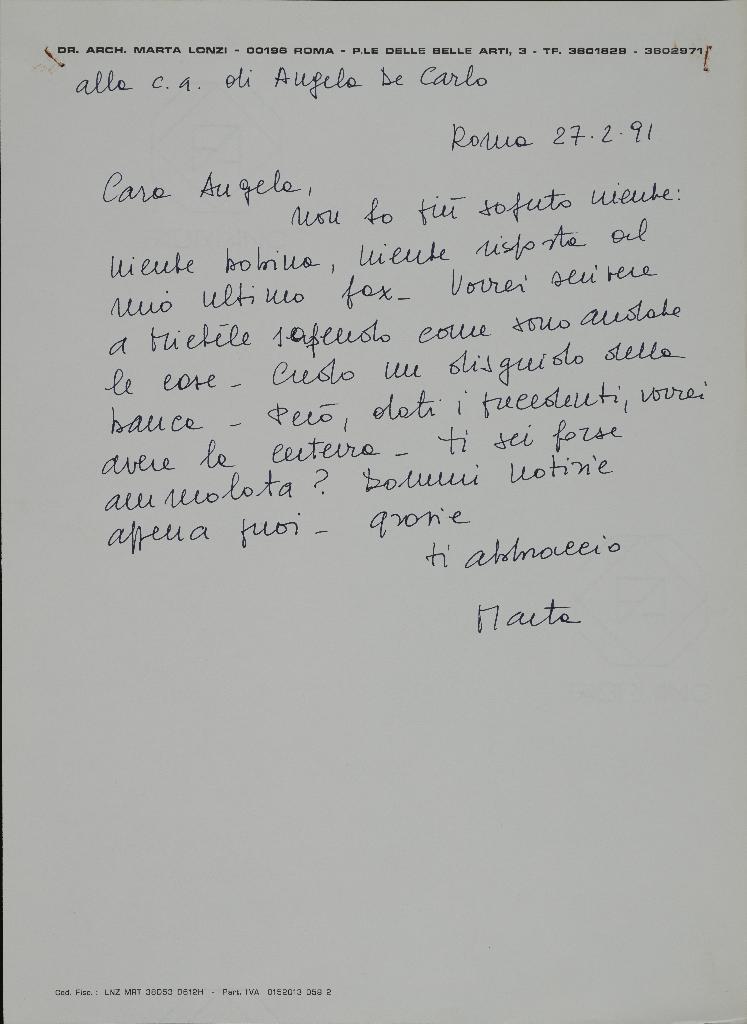 DR. ARCH. MARTA LONZI - 00196 ROMA - P.LE DELLE BELLE ARTI, 3 - TF. 3601829 - 3602971
alla c.a. di Angela De Carlo
Roma 27.2.91
Cara Angela,
non ho più saputo niente:
niente bobina, niente risposta al
mio ultimo fax - Vorrei scrivere
a Michéle sapendo come sono andate
le cose - Credo un disguido della
banca - Però, dati i precedenti, vorrei
avere la certezza - ti sei forse
ammalata? Dammi notizie
appena puoi - grazie
ti abbraccio
Marta
Cod. Fisc.: LNZ MRT 38D53 D612H - Part. IVA 0152013 058 2